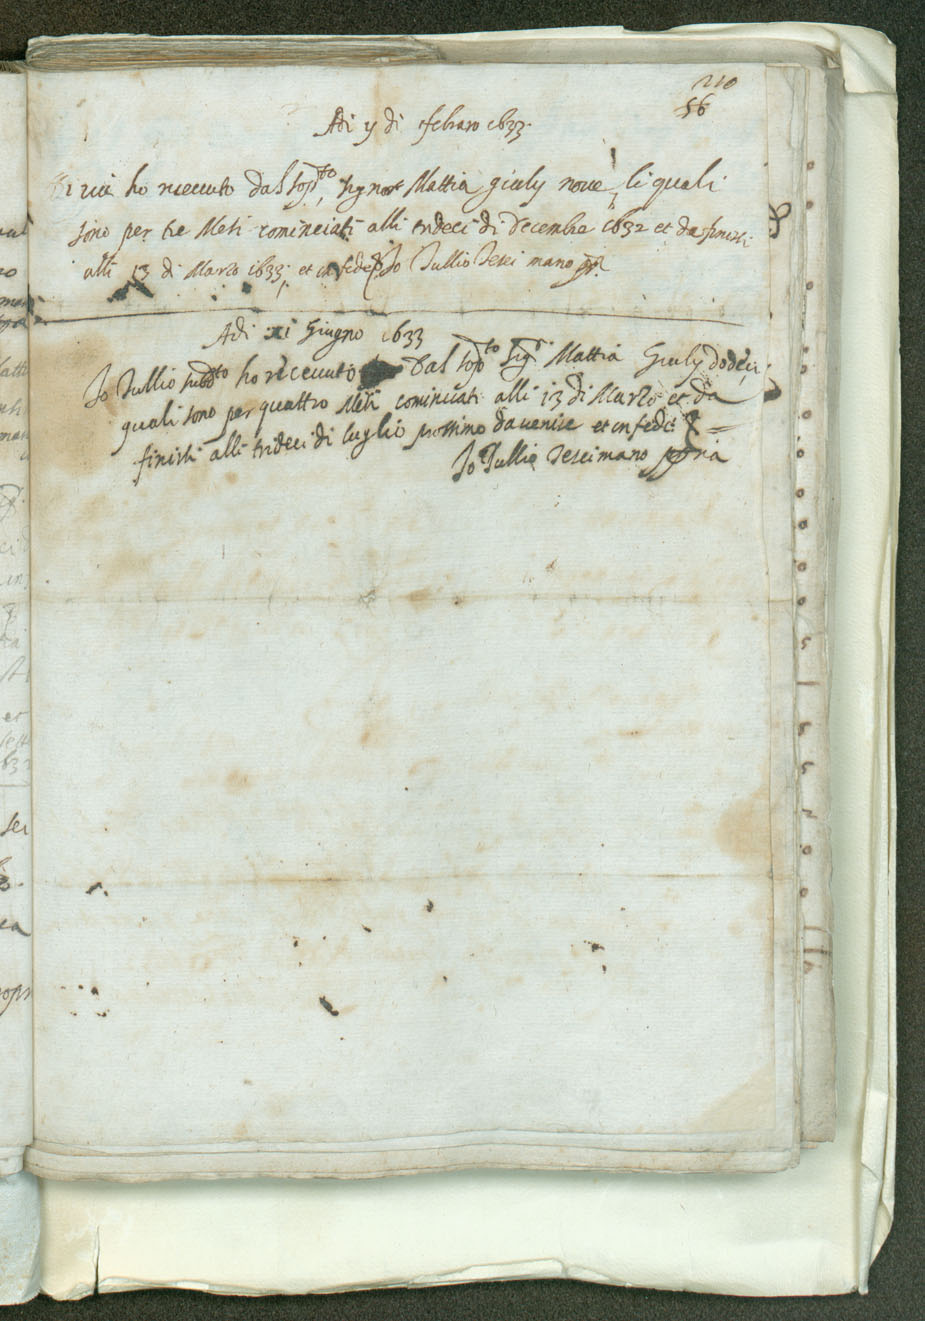 210
56
Adi y di febraro 1633.
ho riceuuto dal sop.to sig.nor Mattia giuly noue, li quali
sono per tre Mesi cominciati alli trideci di Decembre 1632 et da finirsi
alli 13 di Marzo 1633; et in fede Io Tullio Tesei mano
Adi xi Giugno 1633
Io Tullio sud.to ho riceuuto dal sop.to Sig.r Mattia Giuly dodeci
quali sono per quattro Mesi cominciati alli 13 di Marzo et da
finirsi alli trideci di luglio prossimo da uenire et in fede
Io Tullio Tesei mano ppria